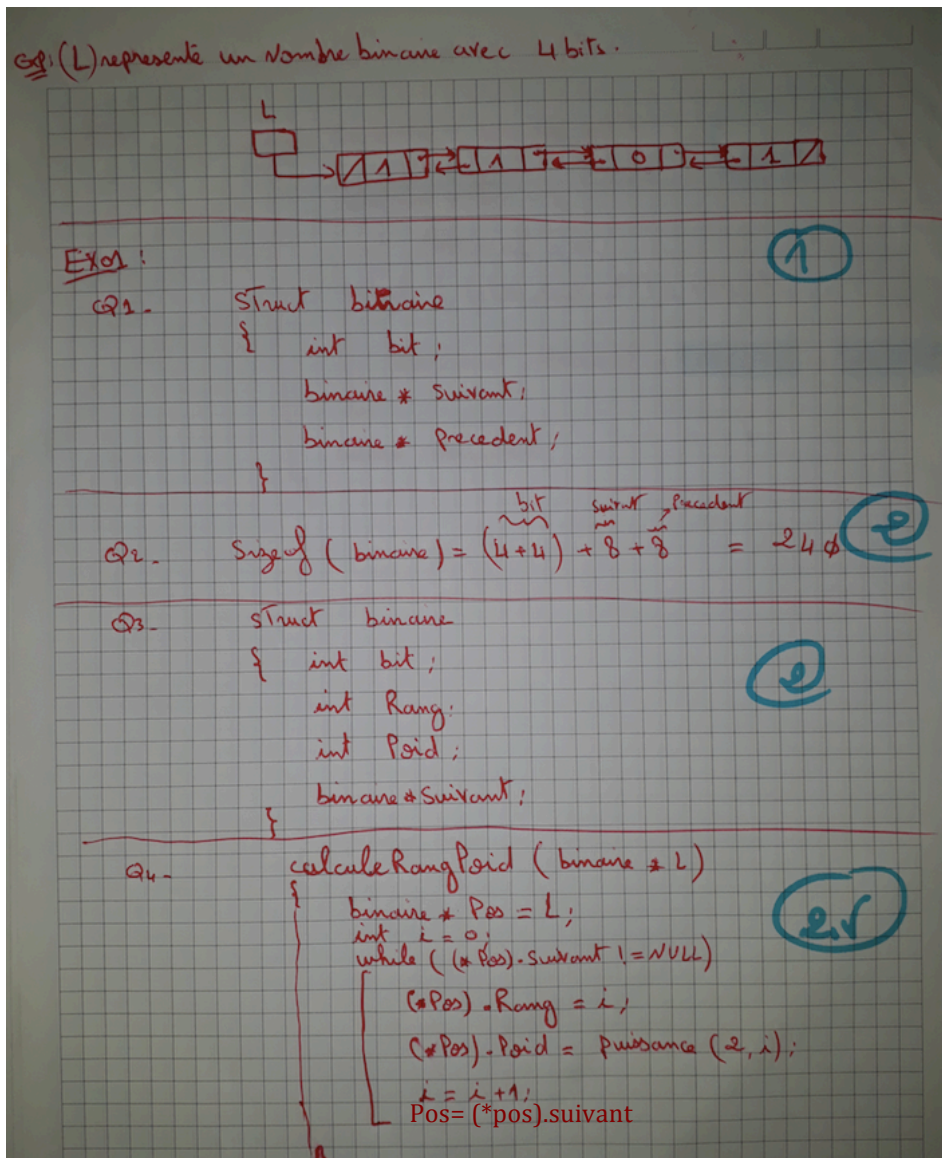 Exp: (L) represente un Nombre binaire avec 4 bits.
L
1 1 0 1
EX01 :
1
Q1- struct binaire
{ int bit ;
binaire * suivant ;
binaire * precedent ;
}
bit suivant precedent
Q2- Sizeof ( binaire ) = (4+4) + 8 + 8 = 24 o
2
Q3- struct binaire
{ int bit ;
2
int Rang ;
int Poid ;
binaire * Suivant ;
}
Q4- calculeRangPoid ( binaire * L )
{
binaire * Pos = L ;
int i = 0 ;
while ( (* Pos) . Suivant ! = NULL )
(*Pos) . Rang = i ;
(*Pos) . Poid = puissance (2, i) ;
i = i +1 ;
Pos= (*pos).suivant